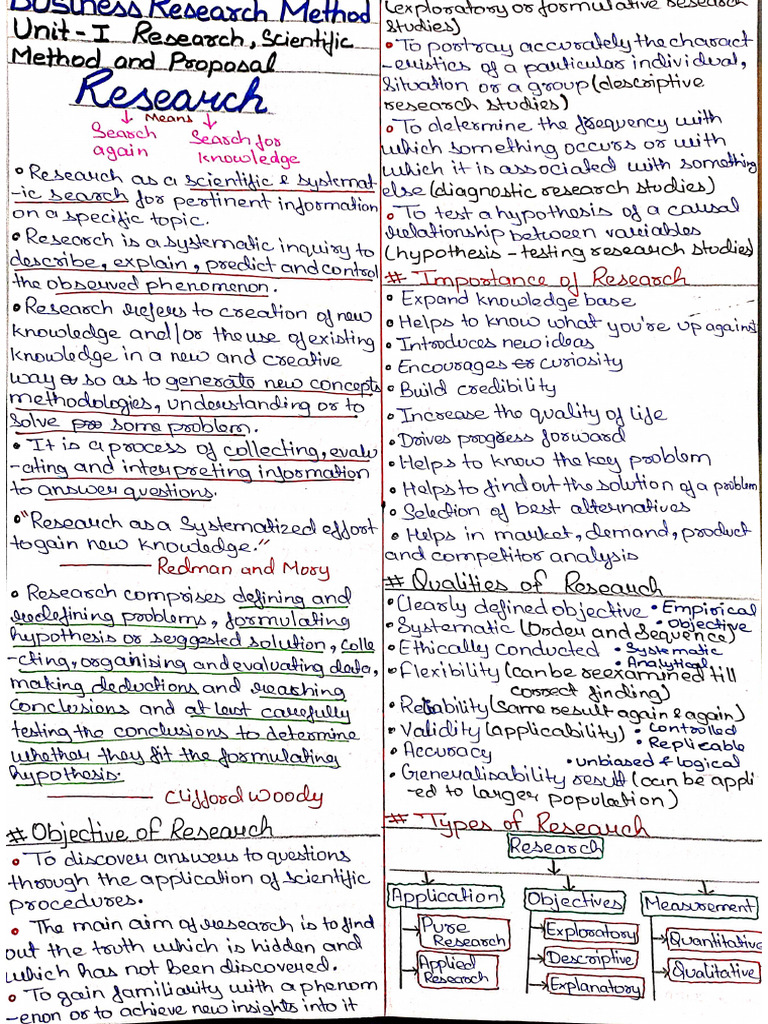 Business Research Method
Unit-I Research, Scientific
Method and Proposal
Research
Means
Search
again
Search for
knowledge
• Research as a scientific & systemat
-ic search for pertinent information
on a specific topic.
• Research is a systematic inquiry to
describe, explain, predict and control
the observed phenomenon.
• Research refers to creation of new
knowledge and/or the use of existing
knowledge in a new and creative
way so as to generate new concepts
methodologies, understanding or to
solve some problem.
• It is a process of collecting, evalu
-ating and interpreting information
to answer questions.
• "Research as a systematized effort
to gain new knowledge."
Redman and Mory
• Research comprises defining and
redefining problems, formulating
hypothesis or suggested solution, colle
-cting, organising and evaluating data,
making deductions and reaching
conclusions and at last carefully
testing the conclusions to determine
whether they fit the formulating
hypothesis.
Clifford Woody
# Objective of Research
• To discover answers to questions
through the application of scientific
procedures.
• The main aim of research is to find
out the truth which is hidden and
which has not been discovered.
• To gain familiarity with a phenom
-enon or to achieve new insights into it
(exploratory or formulative research
studies)
• To portray accurately the charact
-eristics of a particular individual,
situation or a group (descriptive
research studies)
• To determine the frequency with
which something occurs or with
which it is associated with something
else (diagnostic research studies)
• To test a hypothesis of a causal
relationship between variables
(hypothesis - testing research studies)
# Importance of Research
• Expand knowledge base
• Helps to know what you're up against
• Introduces new ideas
• Encourages curiosity
• Build credibility
• Increase the quality of life
• Drives progress forward
• Helps to know the key problem
• Helps to find out the solution of a problem
• Selection of best alternatives
• Helps in market, demand, product
and competitor analysis
# Qualities of Research
• Clearly defined objective • Empirical
• Systematic (Order and Sequence) • Objective
• Ethically conducted • Systematic
• Analytical
• Flexibility (can be reexamined till
correct finding)
• Reliability (same result again & again)
• Validity (applicability) • Controlled
• Replicable
• Accuracy • unbiased & logical
• Generalisability result (can be appli
-ed to larger population)
# Types of Research
Research
Application Objectives Measurement
Pure
Research
Applied
Research
Exploratory
Descriptive
Explanatory
Quantitative
Qualitative